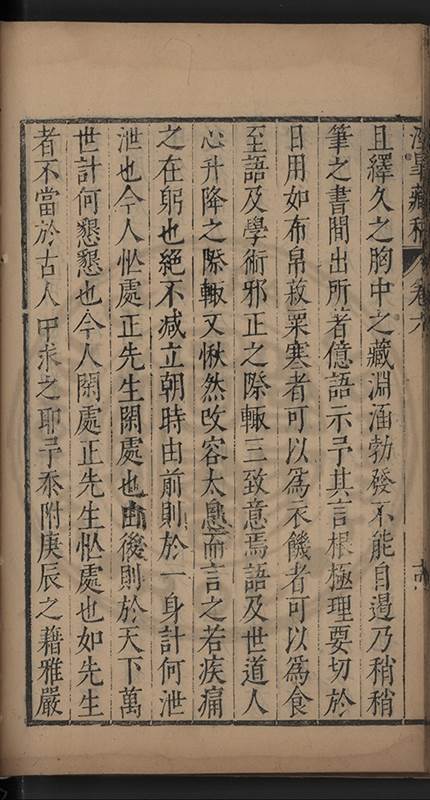 涇臯藏稿 卷六
且繹久之胸中之藏淵涵勃發不能自遏乃稍稍
筆之書間出所著億語示予其言根極理要切於
日用如布帛菽粟寒者可以爲衣饑者可以爲食
至語及學術邪正之際輙三致意焉語及世道人
心升降之際輙又愀然改容太息而言之若疾痛
之在躬也絶不减立朝時由前則於一身計何泄
泄也今人忙處正先生閑處也由後則於天下萬
世計何懇懇也今人閑處正先生忙處也如先生
者不當於古人中求之耶予忝附庚辰之藉雅嚴